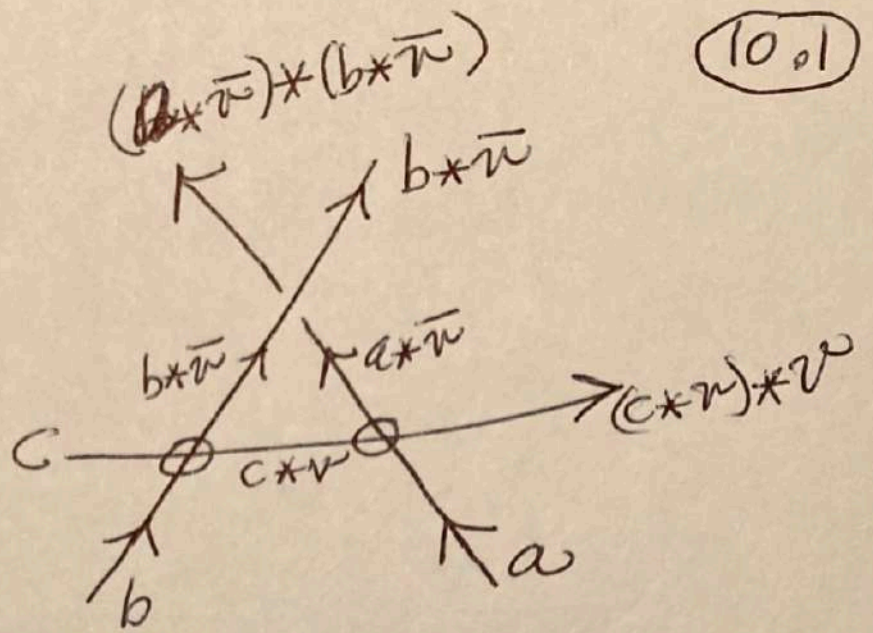 10.1
(a * v̄) * (b * v̄)
b * v̄
b * v̄
a * v̄
(c * v) * v
c
c * v
b
a